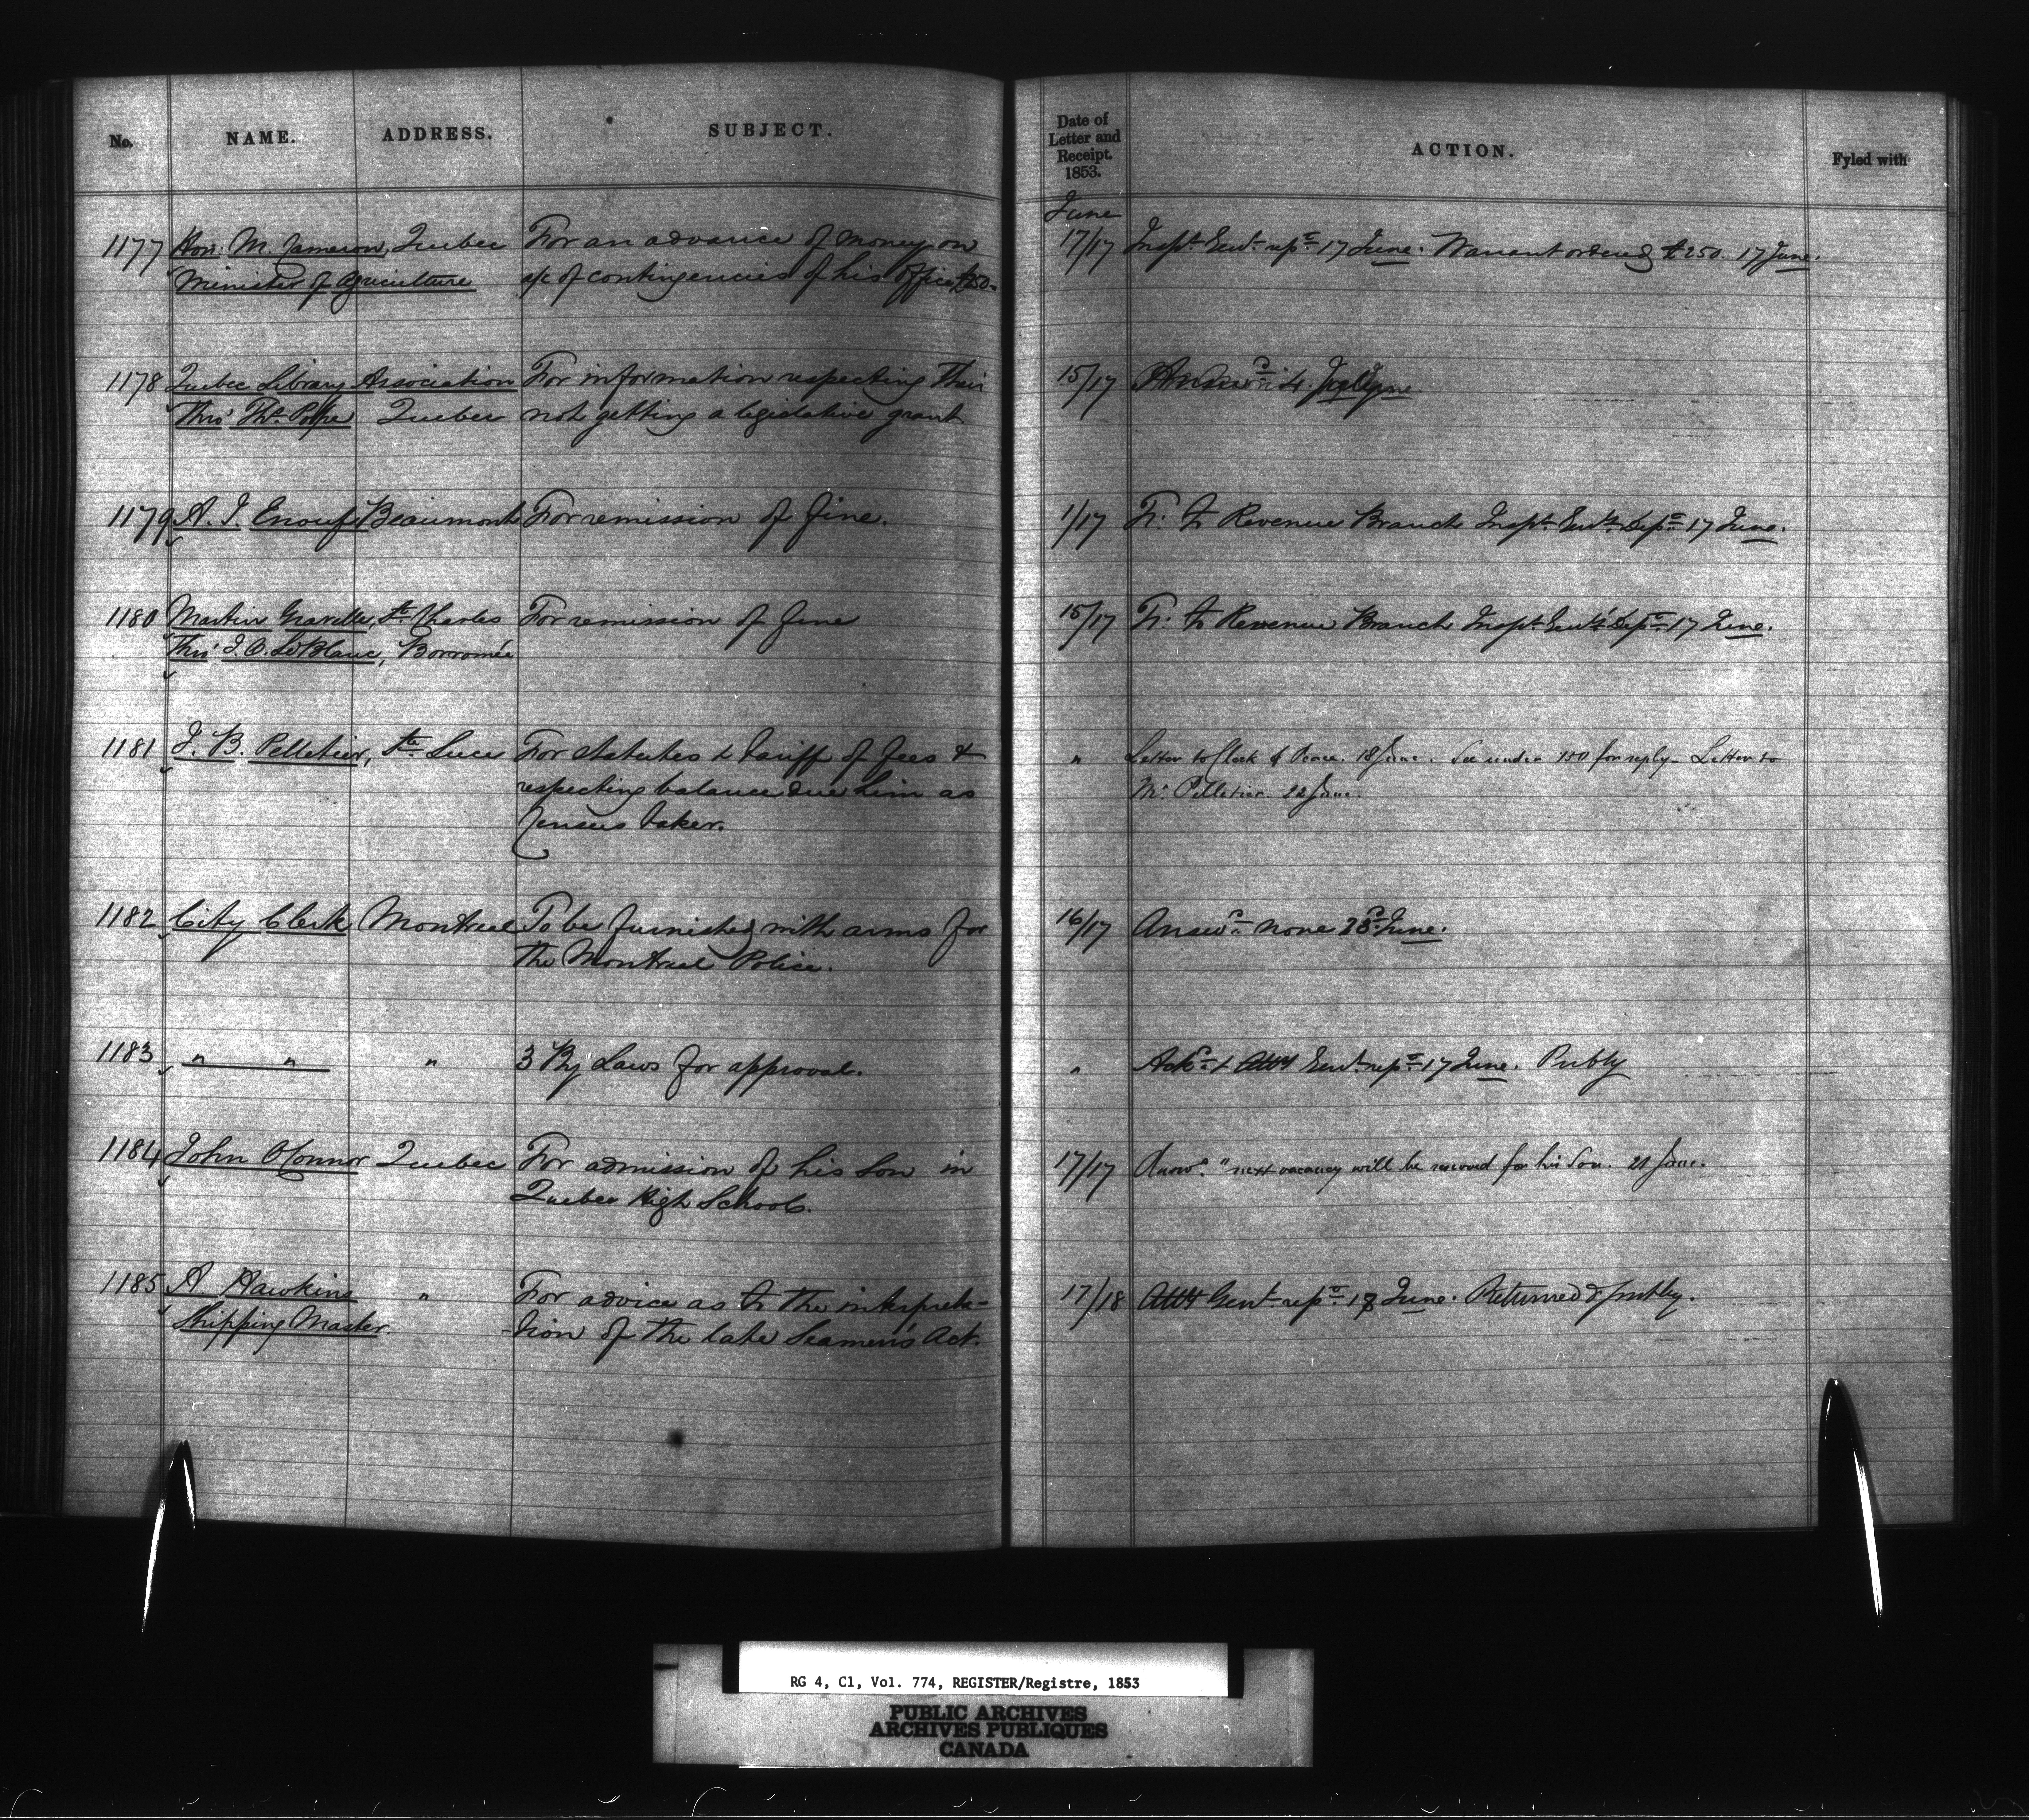 No. NAME. ADDRESS. SUBJECT. Date of Letter and Receipt. 1853. ACTION. Fyled with
June
1177 Hon: M. Cameron, Quebec For an advance of money on 17/17 Inspr. Genl. repd. 17 June. Warrant ordered £250. 17 June.
Minister of Agriculture a/c of contingencies of his office £250.
1178 Quebec Library Association For information respecting their 15/17
Thro' Thos. Pope Quebec not getting a legislative grant
1179 A. J. Enouf Beaumont For remission of fine. 1/17 Fr. to Revenue Branch Inspr. Genl's. Dept. 17 June.
1180 Martin Gravelle, St. Charles For remission of fine 15/17 Fr. to Revenue Branch Inspr. Genl's. Dept. 17 June.
Thro' J. O. LeBlanc, Borromée
1181 J. B. Pelletier, Ste. Luce For Statutes & tariff of fees & " Letter to Clerk of Peace. 18 June. See under 750 for reply – Letter to
respecting balance due him as Mr. Pelletier. 22 June.
Census taker.
1182 City Clerk Montreal To be furnished with arms for 16/17 Answd. none 23d June.
the Montreal Police.
1183 " " " 3 By Laws for approval. " Ackd. & Atty Genl. repd. 17 June. Publy
1184 John O'Connor Quebec For admission of his Son in 17/17 Answd. "next vacancy will be reserved for his Son. 21 June.
Quebec High School.
1185 A Hawkins " For advice as to the interpreta- 17/18 Atty Genl. repd. 18 June. Returned & publy.
Shipping Master. -tion of the late Seamen's Act.
RG 4, C1, Vol. 774, REGISTER/Registre, 1853
PUBLIC ARCHIVES
ARCHIVES PUBLIQUES
CANADA